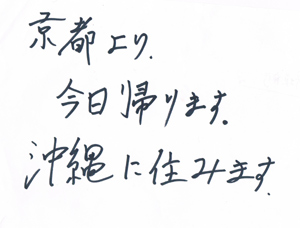 京都より.
今日帰ります。
沖縄に住みます.